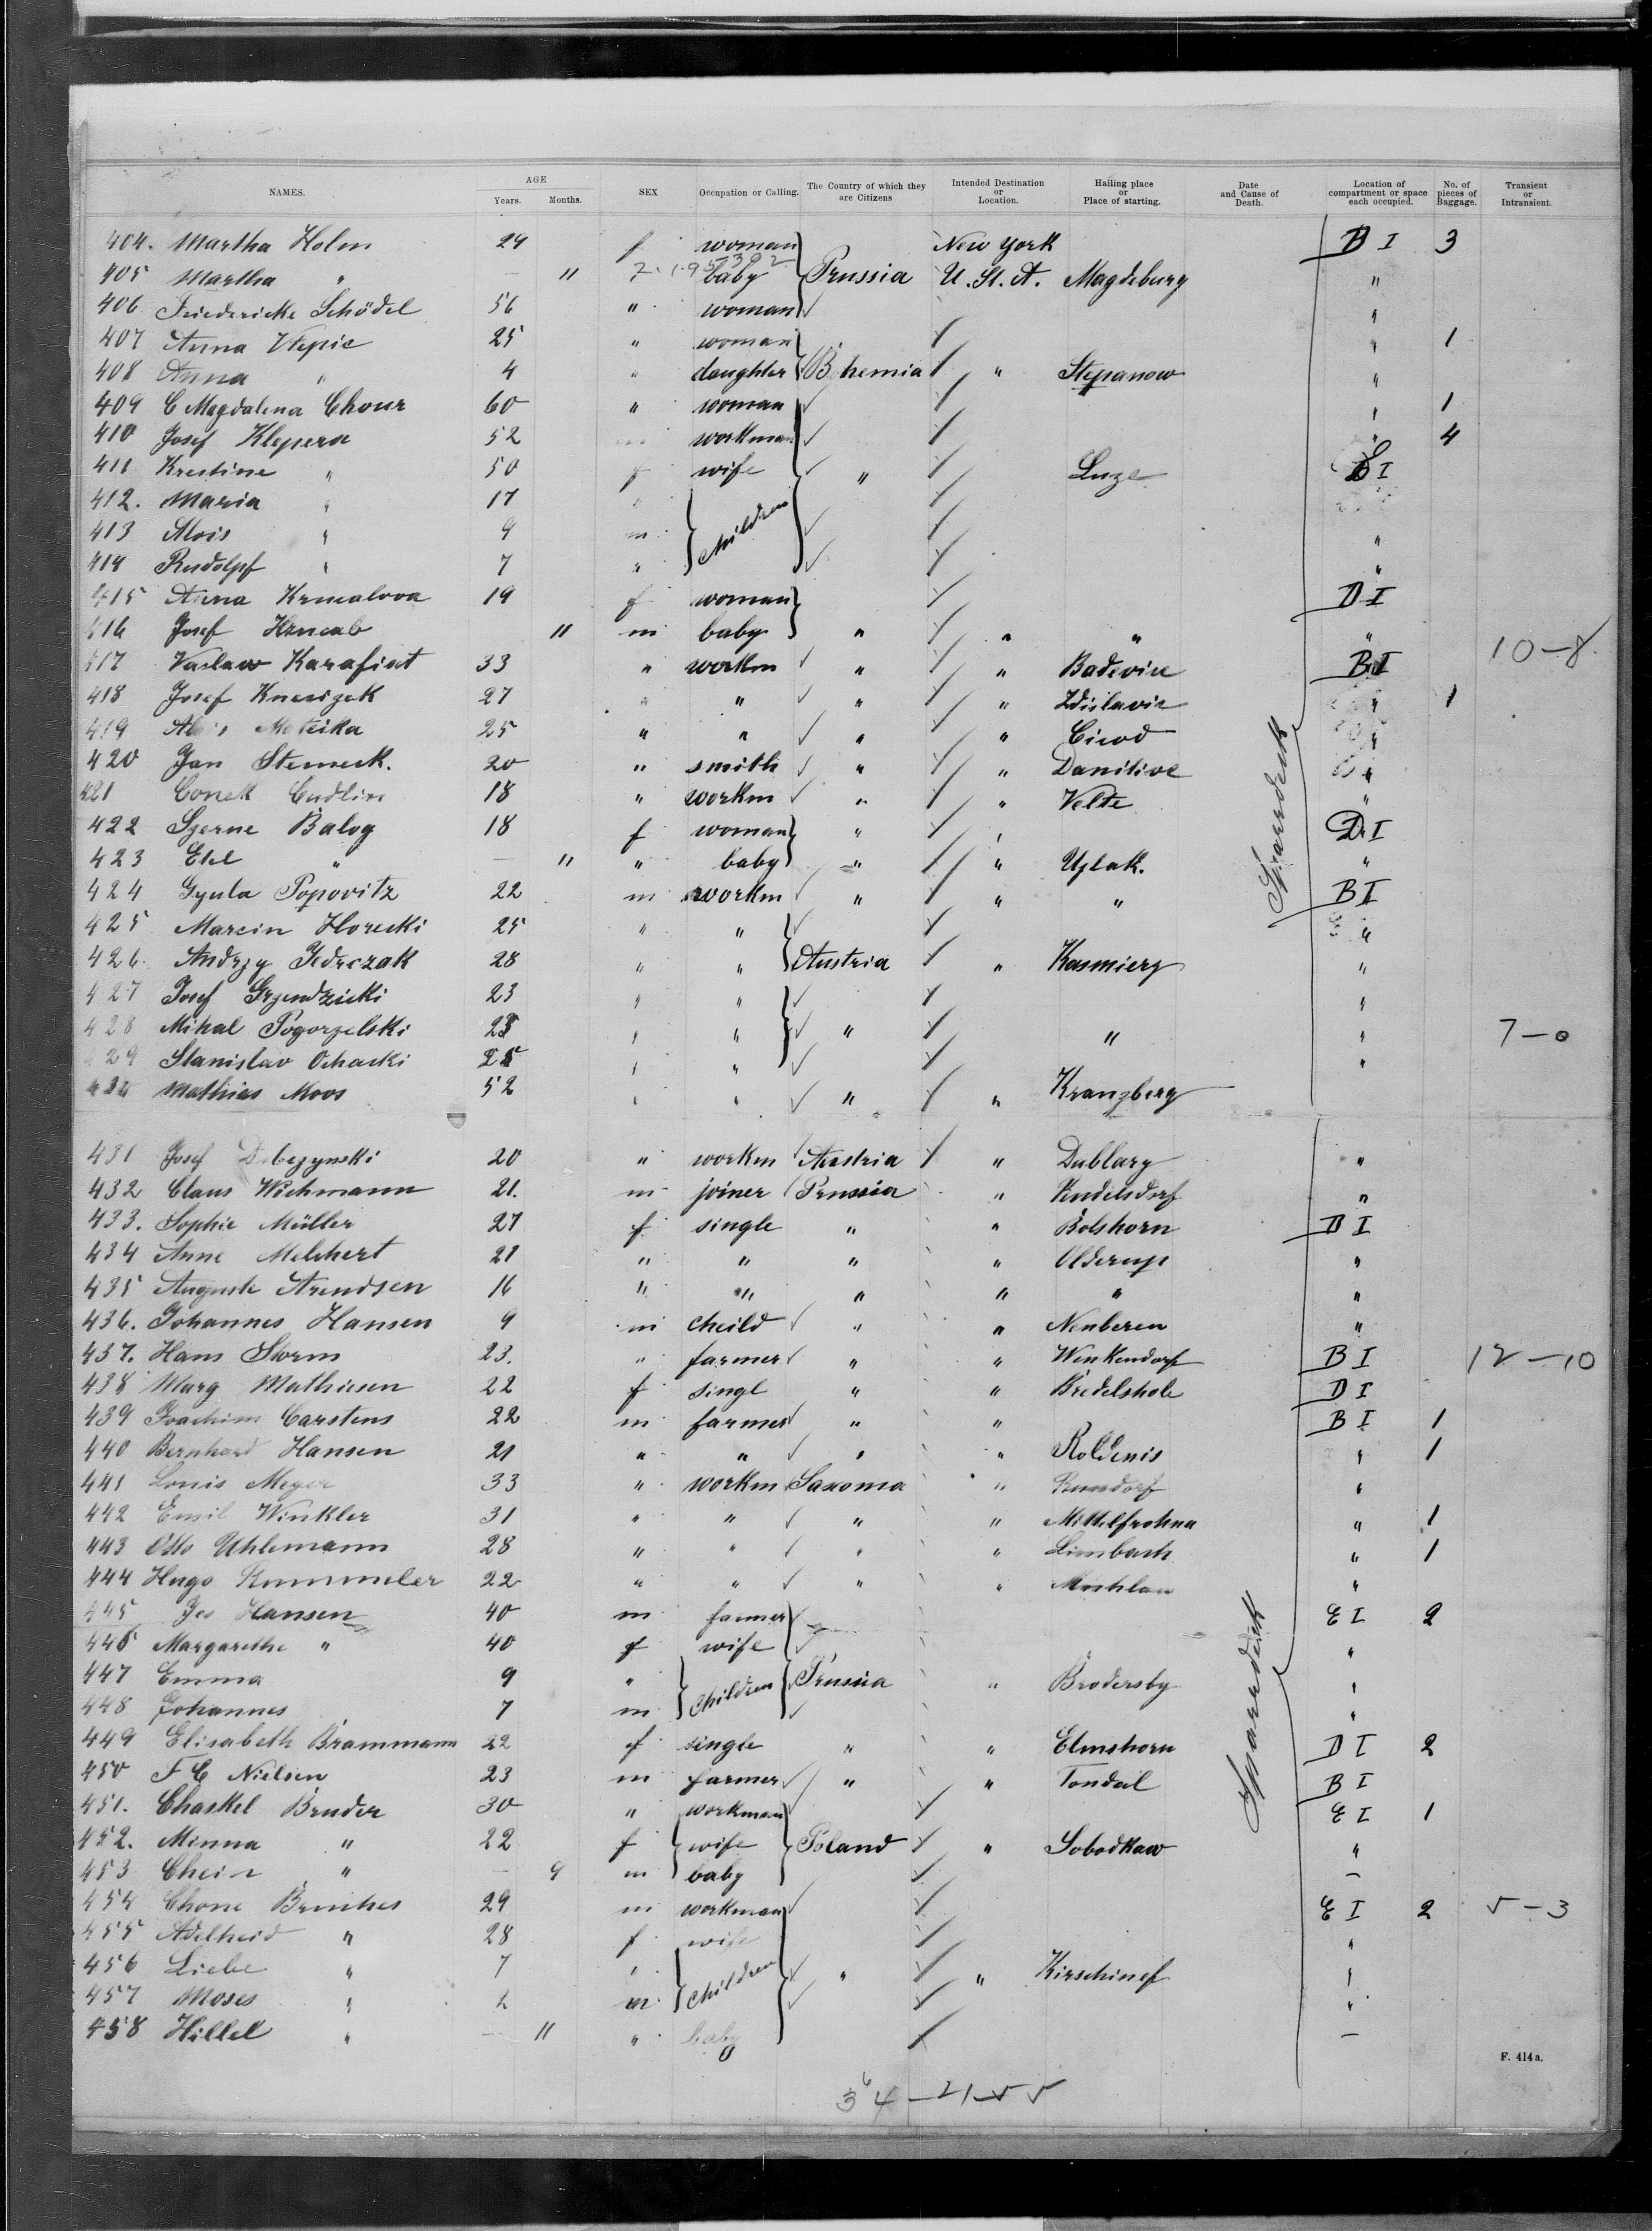 NAMES. AGE Years. Months. SEX Occupation or Calling. The Country of which they are Citizens Intended Destination or Location. Hailing place or Place of starting. Date and Cause of Death. Location of compartment or space each occupied. No. of pieces of Baggage. Transient or Intransient.
404. Martha Holm 29 f woman New York B I 3
405 Martha " — 11 baby Prussia U. St. A. Magdeburg "
406 Friedericke Schödel 56 " woman "
407 Anna 25 " woman " 1
408 Anna " 4 " daughter Bohemia " Stepanow "
409 C Magdalena Chour 60 " woman " 1
410 Josef Klepera 52 m workman " 4
411 Krestine " 50 f wife " Luze E I
412. Maria " 17 " children
413 Alois " 9 m "
414 Rudolpf " 7 " "
415 Anna Krmalova 19 f woman D I
416 Josef 11 m baby " " " " 10-8
417 Vaslaw Karafiat 33 " workm " " Badevise B I
418 Josef Knesizek 27 " " " " Zdislavic " 1
419 Alois Moteika 25 " " " " Cicod "
420 Jan Stemeck. 20 " smith " " Danilive "
421 Conek Cudlin 18 " workm " " Velte "
422 Szerne Balog 18 f woman " " D I
423 Etel " — 11 " baby " " Uzlak. "
424 Gyula Popovitz 22 m workm " " " B I
425 Marcin Horecki 25 " " "
426. Andrzy Jedrczak 28 " " Austria " Kasmierz "
427 Josef Grzendzicki 23 " " "
428 Mihal Pogorzelski 23 " " " " " 7-0
429 Stanislav Ochacki 25 " " "
Mathias Moos 52 " " " " Kranzberg
431 Josef 20 " workm Austria " Dublary "
432 Claus Wichmann 21. m joiner Prussia " Kudelsdorf "
433. Sophie Müller 27 f single " " Bolshorn D I
434 Anne Melchert 21 " " " " Olderup "
435 Auguste Arendsen 16 " " " " " "
436. Johannes Hansen 9 m cheild " " Nenberen "
437. Hans Storm 23. " farmer " " Winkendorf B I 12-10
438 Marg Mathiesen 22 f singl " " Bredelshole D I
439 Joachim Carstens 22 m farmer " " B I 1
440 Bernhard Hansen 21 " " " " Roldenis " 1
441 Louis Meyer 33 " workm Saxonia " "
442 Emil Winkler 31 " " " " Mittelfrohna " 1
443 Otto Uhlemann 28 " " " " Limbach " 1
444 Hugo Kummeler 22 " " " " "
445 Jes Hansen 40 m farmer E I 2
446 Margarethe " 40 f wife "
447 Emma 9 " children Prussia " Brodersby "
448 Johannes 7 m "
449 Elisabeth Brammann 22 f single " " Elmshorn D I 2
450 F C Nielsen 23 m farmer " " Tondal B I
451. Chaskel Bruder 30 " workman E I 1
452. Minna " 22 f wife Poland " Sobodkaw "
453 " — 9 m baby —
454 Chone 29 m workman E I 2 5-3
455 Adelheid " 28 f wife "
456 Liebe " 7 " children " " Kirschinef "
457 Moses " m "
458 Hillel " — 11 " baby —
F. 414a.